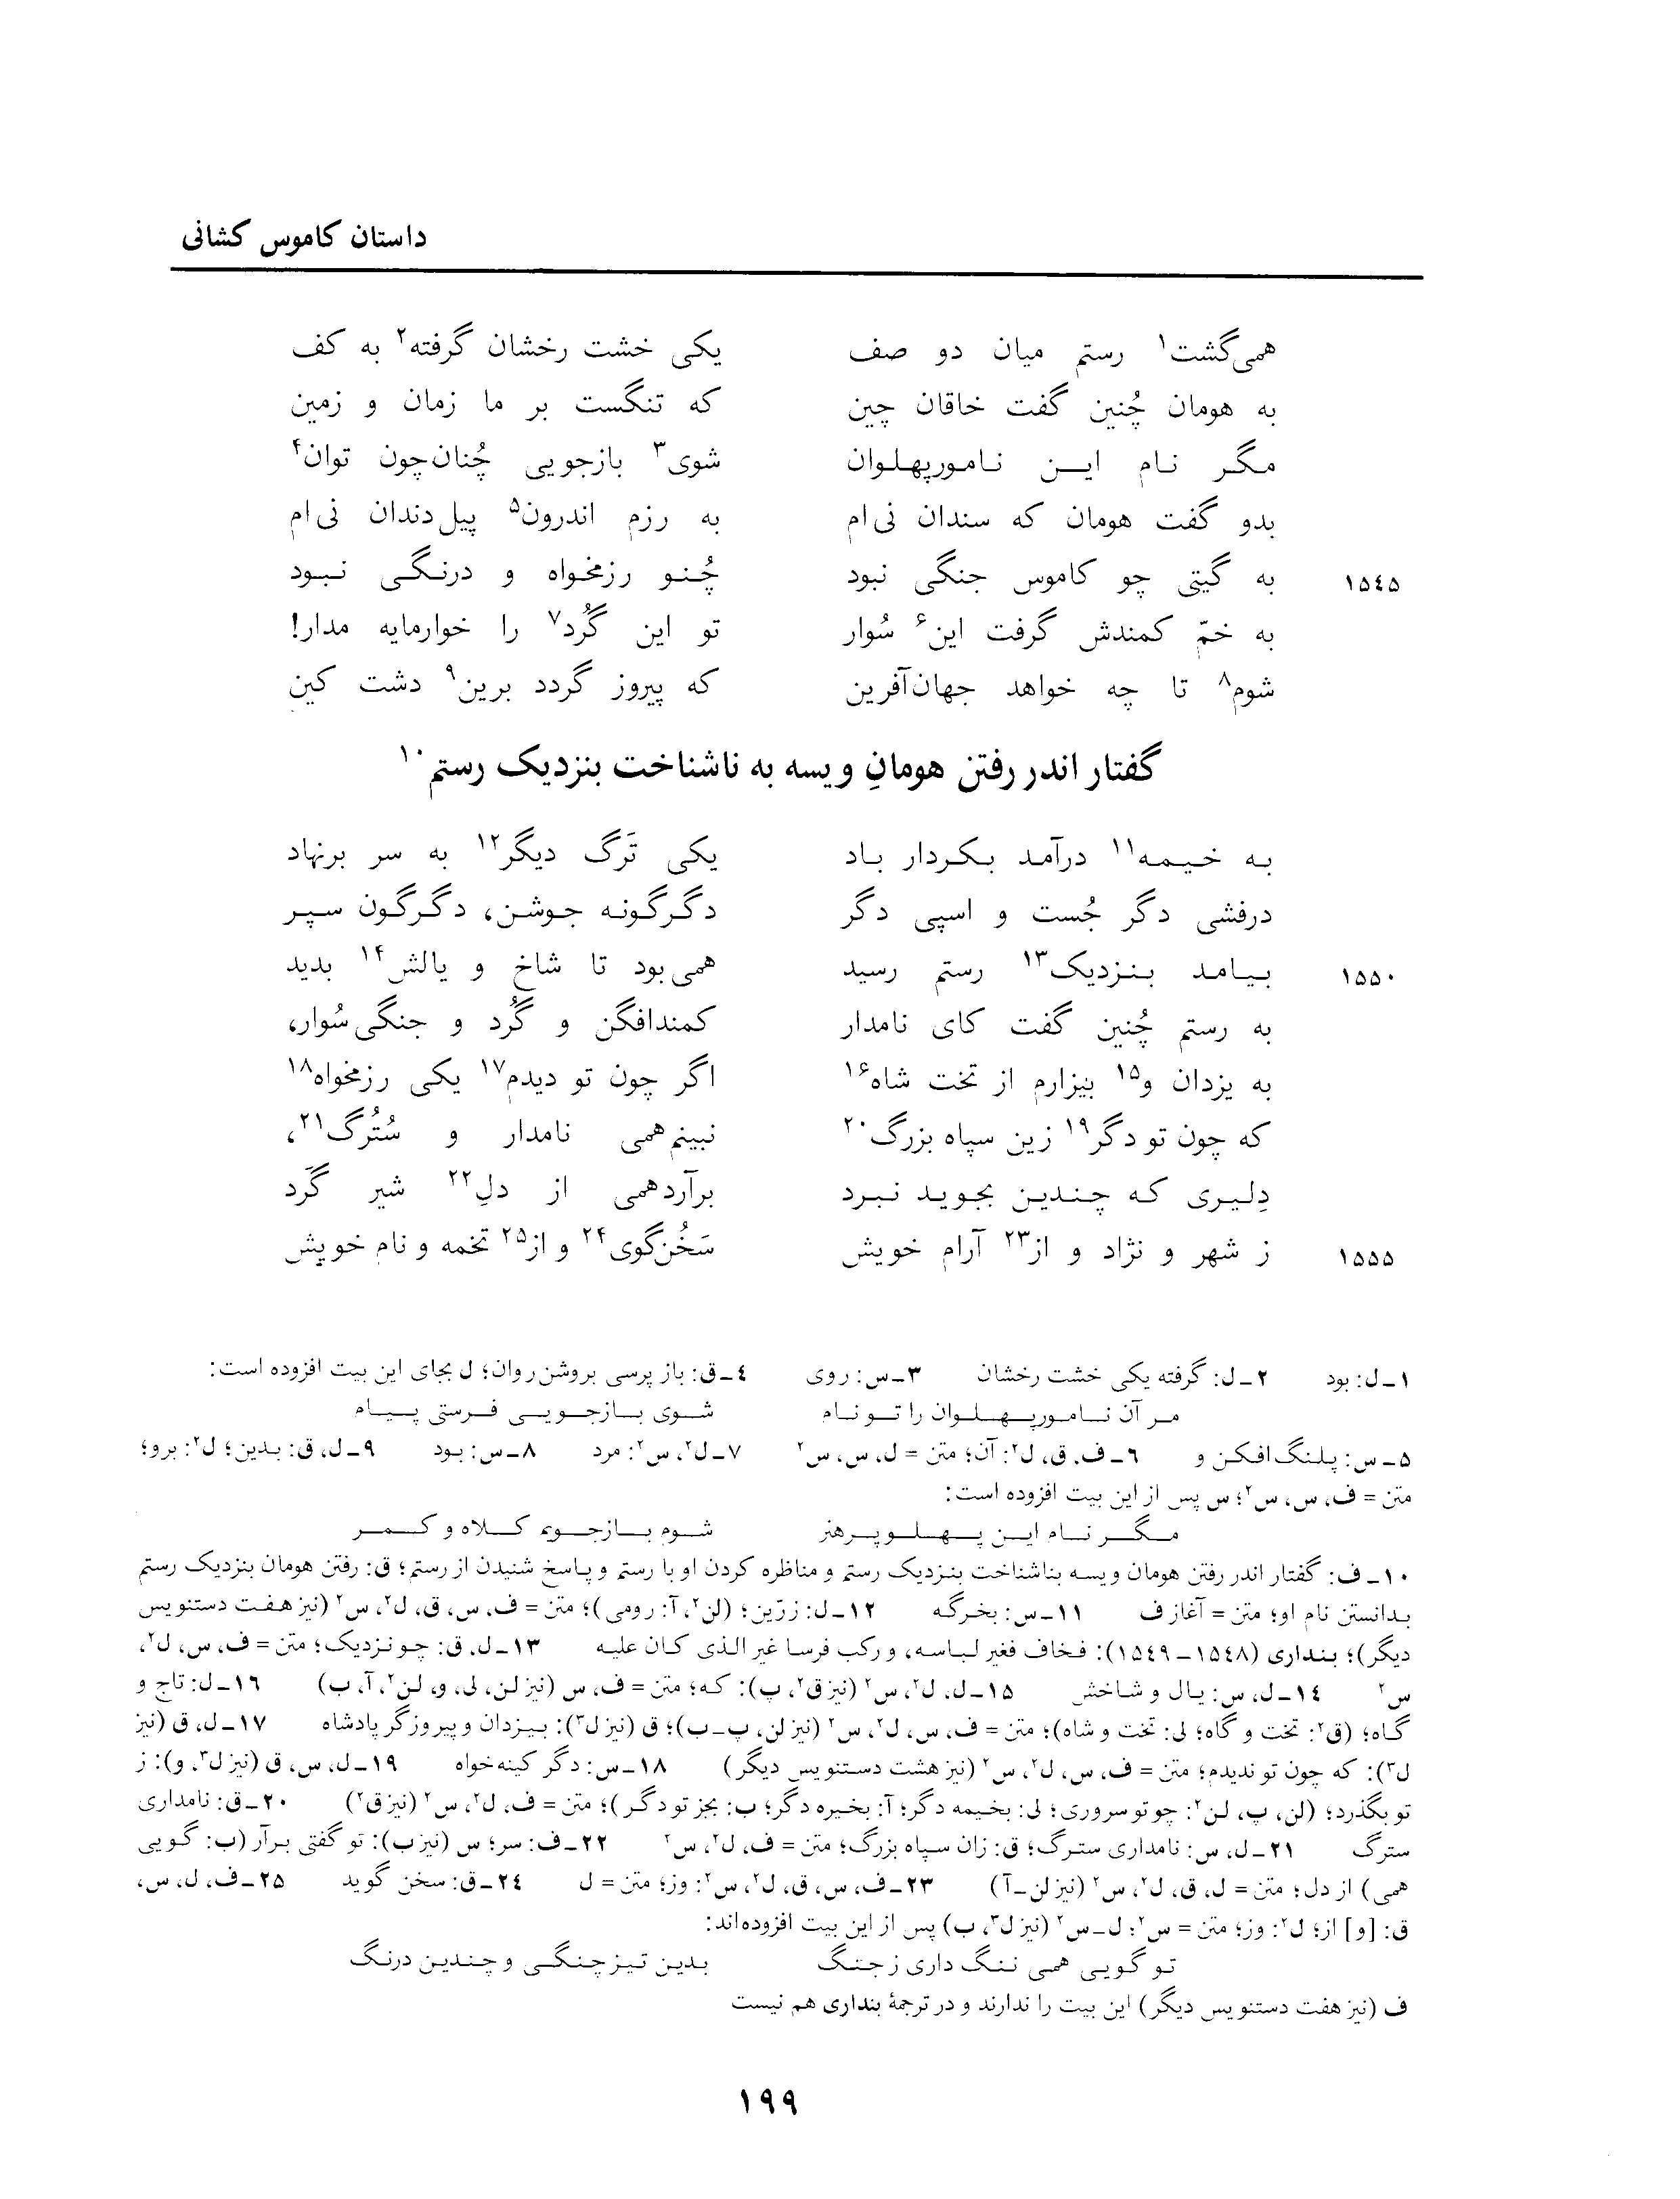 داستان کاموس کشانی
همی‌گشت۱ رستم میان دو صف یکی خشت رخشان گرفته۲ به کف
به هومان چُنین گفت خاقان چین که تنگست بر ما زمان و زمین
مگر نام این نامورپهلوان شوی۳ بازجویی چُنان‌چون توان۴
بدو گفت هومان که سندان نی‌ام به رزم اندرون۵ پیل‌دندان نی‌ام
۱۵۴۵ به گیتی چو کاموس جنگی نبود چُنو رزمخواه و درنگی نبود
به خمّ کمندش گرفت این۶ سُوار تو این گُرد۷ را خوارمایه مدار!
شوم۸ تا چه خواهد جهان‌آفرین که پیروز گردد برین۹ دشت کین
گفتار اندر رفتن هومانِ ویسه به ناشناخت بنزدیک رستم۱۰
به خیمه۱۱ درآمد بکردار باد یکی تَرگ دیگر۱۲ به سر برنهاد
درفشی دگر جُست و اسپی دگر دگرگونه جوشن، دگرگون سپر
۱۵۵۰ بیامد بنزدیک۱۳ رستم رسید همی‌بود تا شاخ و یالش۱۴ بدید
به رستم چُنین گفت کای نامدار کمندافگن و گُرد و جنگی‌سُوار،
به یزدان و۱۵ بیزارم از تخت شاه۱۶ اگر چون تو دیدم۱۷ یکی رزمخواه۱۸
که چون تو دگر۱۹ زین سپاه بزرگ۲۰ نبینم‌همی نامدار و سُتُرگ۲۱،
دِلیری که چندین بجوید نبرد برآردهمی از دلِ۲۲ شیر گَرد
۱۵۵۵ ز شهر و نژاد و از۲۳ آرام خویش سَخُن‌گوی۲۴ و از۲۵ تخمه و نام خویش
۱ـ ل: بود ۲ـ ل: گرفته یکی خشت رخشان ۳ـ س: روی ۴ـ ق: باز پرسی بروشن روان؛ ل بجای این بیت افزوده است:
مر آن نامورپهلوان را تو نام شوی بازجویی فرستی پیام
۵ـ س: پلنگ‌افکن و ۶ـ ف، ق، ل۲: آن؛ متن = ل، س، س۲ ۷ـ ل۲، س۲: مرد ۸ـ س: بود ۹ـ ل، ق: بدین؛ ل۲: برو؛
متن = ف، س، س۲؛ س پس از این بیت افزوده است:
مگر نام این پهلو پرهنر شوم بازجویم کلاه و کمر
۱۰ـ ف: گفتار اندر رفتن هومان ویسه بناشناخت بنزدیک رستم و مناظره کردن او با رستم و پاسخ شنیدن از رستم؛ ق: رفتن هومان بنزدیک رستم
بدانستن نام او؛ متن = آغاز ف ۱۱ـ س: بخرگه ۱۲ـ ل: زرّین؛ (لن۲، آ: رومی)؛ متن = ف، س، ق، ل۲، س۲ (نیز هفت دستنویس
دیگر)؛ بنداری (۱۵۴۸ ـ ۱۵۴۹): فخاف فغیر لباسه، و رکب فرسا غیر الذی کان علیه ۱۳ـ ل، ق: چو نزدیک؛ متن = ف، س، ل۲،
س۲ ۱۴ـ ل، س: یال و شاخش ۱۵ـ ل، ل۲، س۲ (نیز ق۲، پ): که؛ متن = ف، س (نیز لن، لی، و، لن۲، آ، ب) ۱۶ـ ل: تاج و
گاه؛ (ق۲: تخت و گاه؛ لی: تخت و شاه)؛ متن = ف، س، ل۲، س۲ (نیز لن، پ ـ ب)؛ ق (نیز ل۳): بیزدان و پیروزگر پادشاه ۱۷ـ ل، ق (نیز
ل۳): که چون تو ندیدم؛ متن = ف، س، ل۲، س۲ (نیز هشت دستنویس دیگر) ۱۸ـ س: دگر کینه‌خواه ۱۹ـ ل، س، ق (نیز ل۳، و): ز
تو بگذرد؛ (لن، پ، لن۲: چو تو سروری؛ لی: بخیمه دگر؛ آ: بخیره دگر؛ ب: بجز تو دگر)؛ متن = ف، ل۲، س۲ (نیز ق۲) ۲۰ـ ق: نامداری
سترگ ۲۱ـ ل، س: نامداری سترگ؛ ق: زان سپاه بزرگ؛ متن = ف، ل۲، س۲ ۲۲ـ ف: سر؛ س (نیز ب): تو گفتی برآر (ب: گویی
همی) از دل؛ متن = ل، ق، ل۲، س۲ (نیز لن ـ آ) ۲۳ـ ف، س، ق، ل۲، س۲: وز؛ متن = ل ۲۴ـ ق: سخن گوید ۲۵ـ ف، ل، س،
ق: [و] از؛ ل۲: وز؛ متن = س۲؛ ل ـ س۲ (نیز ل۳، ب) پس از این بیت افزوده‌اند:
تو گویی همی ننگ داری ز جنگ بدین تیزچنگی و چندین درنگ
ف (نیز هفت دستنویس دیگر) این بیت را ندارند و در ترجمهٔ بنداری هم نیست
۱۹۹